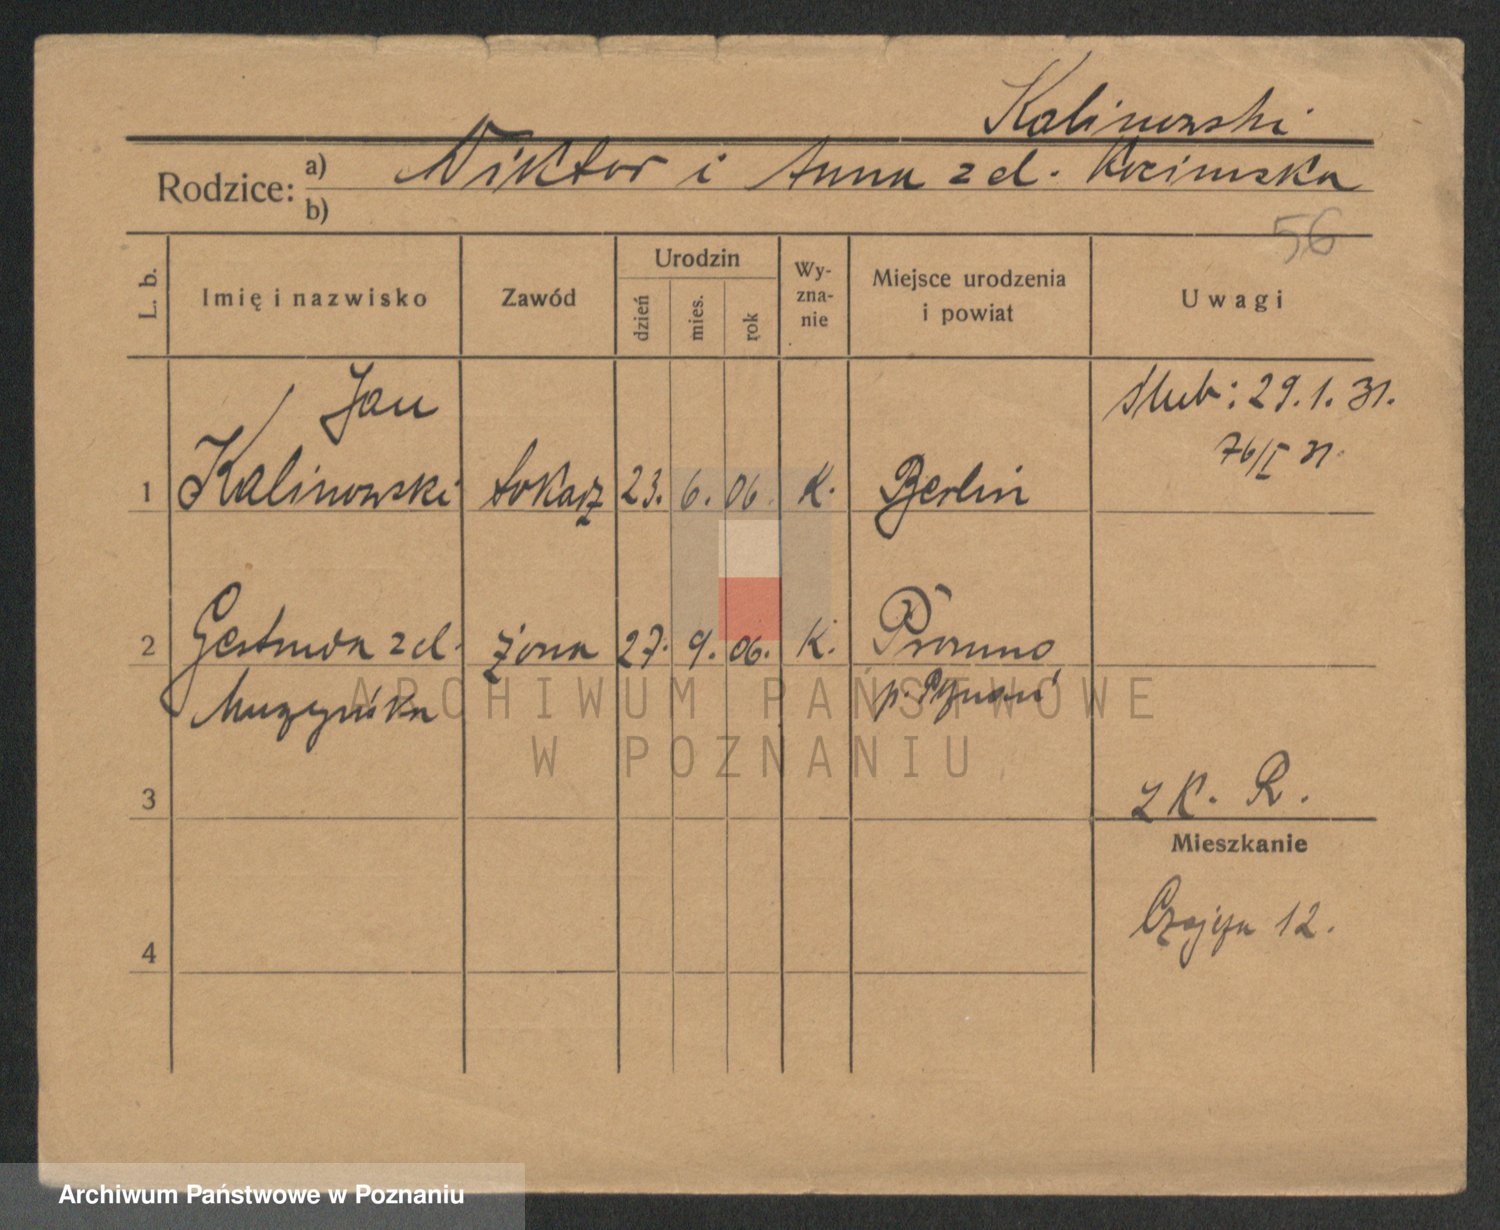 Kalinowski
Rodzice: a) Wiktor i Anna z d. Kozimska
b)
56
L. b. Imię i nazwisko Zawód Urodzin dzień mies. rok Wy-zna-nie Miejsce urodzenia i powiat Uwagi
Jan
Ślub: 29.1.31.
76/I 31.
1 Kalinowski tokarz 23. 6. 06. K. Berlin
2 Gertruda z d. żona 27. 9. 06. K.
Muzyńska
ARCHIWUM PAŃSTWOWE
W POZNANIU
3
Z K. R.
Mieszkanie
12.
4
Archiwum Państwowe w Poznaniu